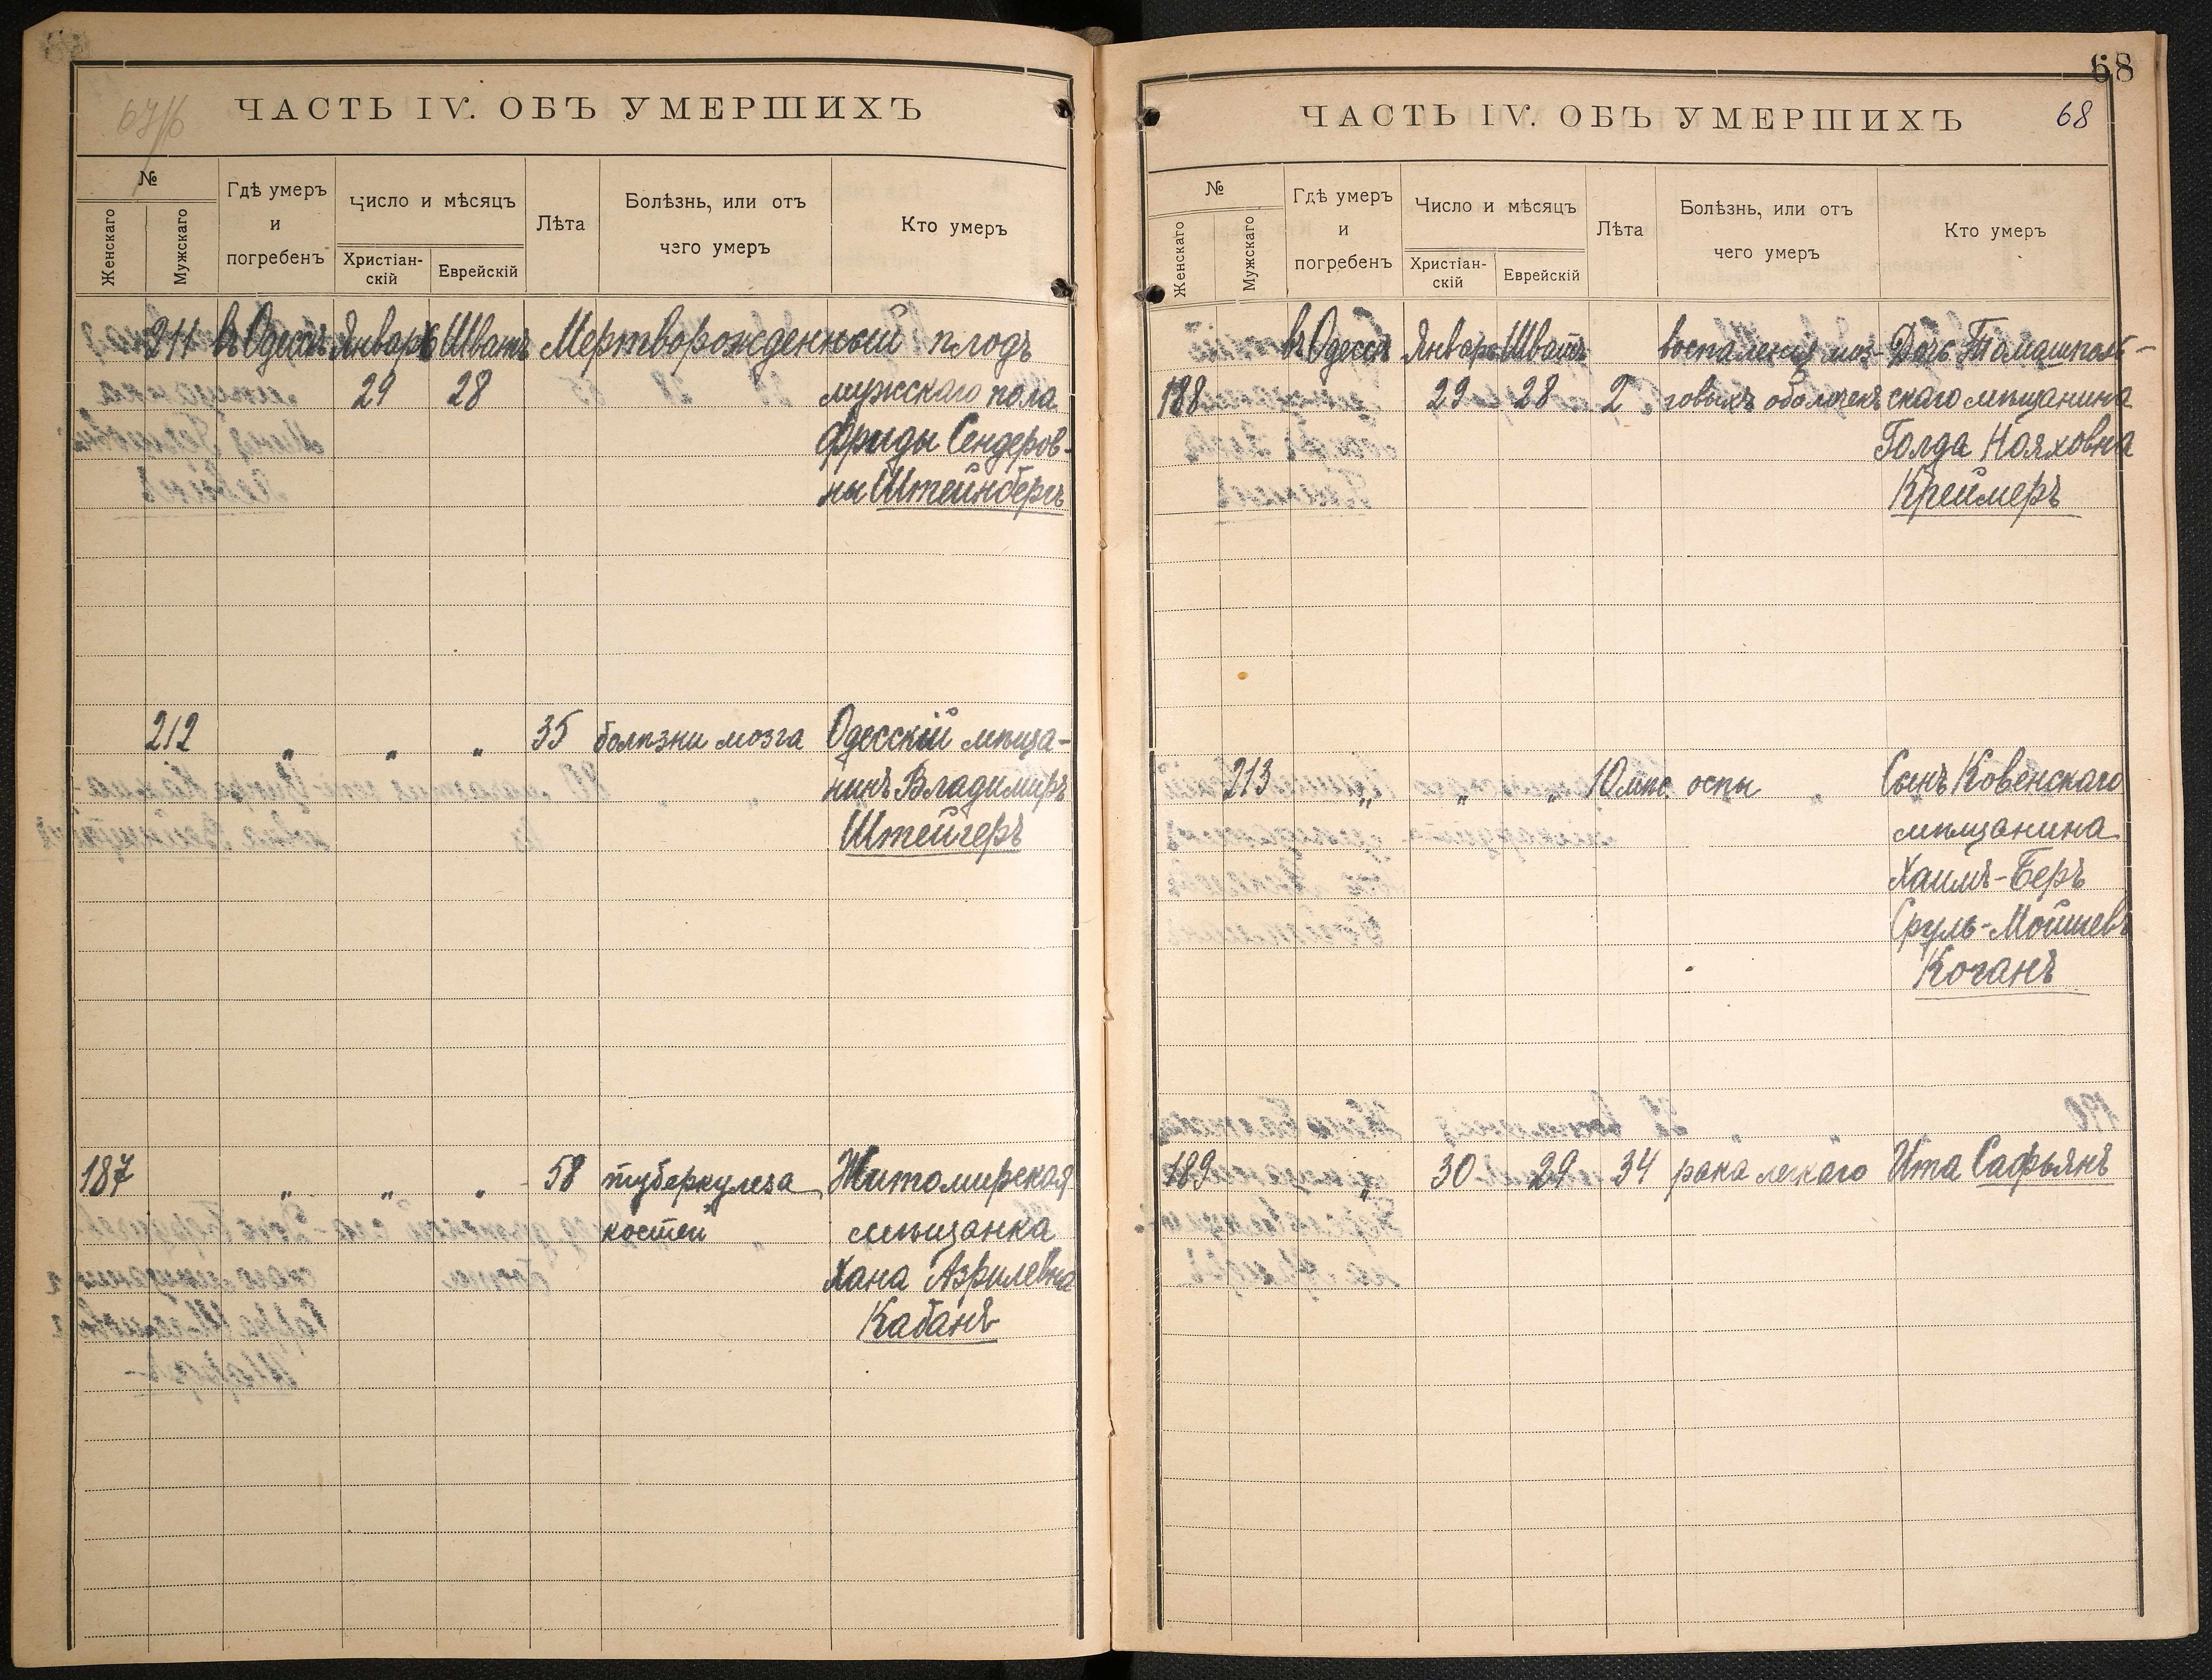 67/б
ЧАСТЬ IV. ОБЪ УМЕРШИХЪ
№
Женскаго
Мужскаго
Гдѣ умеръ
и
погребенъ
Число и мѣсяцъ
Христіан-
скій
Еврейскій
Лѣта
Болѣзнь, или отъ
чего умеръ
Кто умеръ
211 въ Одессѣ Январь Шватъ Мертворожденный плодъ
29 28 мужскаго пола
Фриды Сендеров-
ны Штейнбергъ
212 " " " 35 болѣзни мозга Одесскій мѣща-
нинъ Владимиръ
Штейгеръ
187 " " " 58 туберкулеза Житомирская
костей мѣщанка
Хана Азрилевна
Кабанъ
68
ЧАСТЬ IV. ОБЪ УМЕРШИХЪ 68
№
Женскаго
Мужскаго
Гдѣ умеръ
и
погребенъ
Число и мѣсяцъ
Христіан-
скій
Еврейскій
Лѣта
Болѣзнь, или отъ
чего умеръ
Кто умеръ
въ Одессѣ Январь Шватъ воспаленія моз- Дочь Томашполь-
188 29 28 2 говыхъ оболочекъ скаго мѣщанина
Голда Нояховна
Креймеръ
213 " " " 10 мѣс. оспы Сынъ Ковенскаго
мѣщанина
Хаимъ-Беръ
Сруль-Мошьевъ
Коганъ
189 " 30 29 34 рака легкаго Ита Сафьянъ